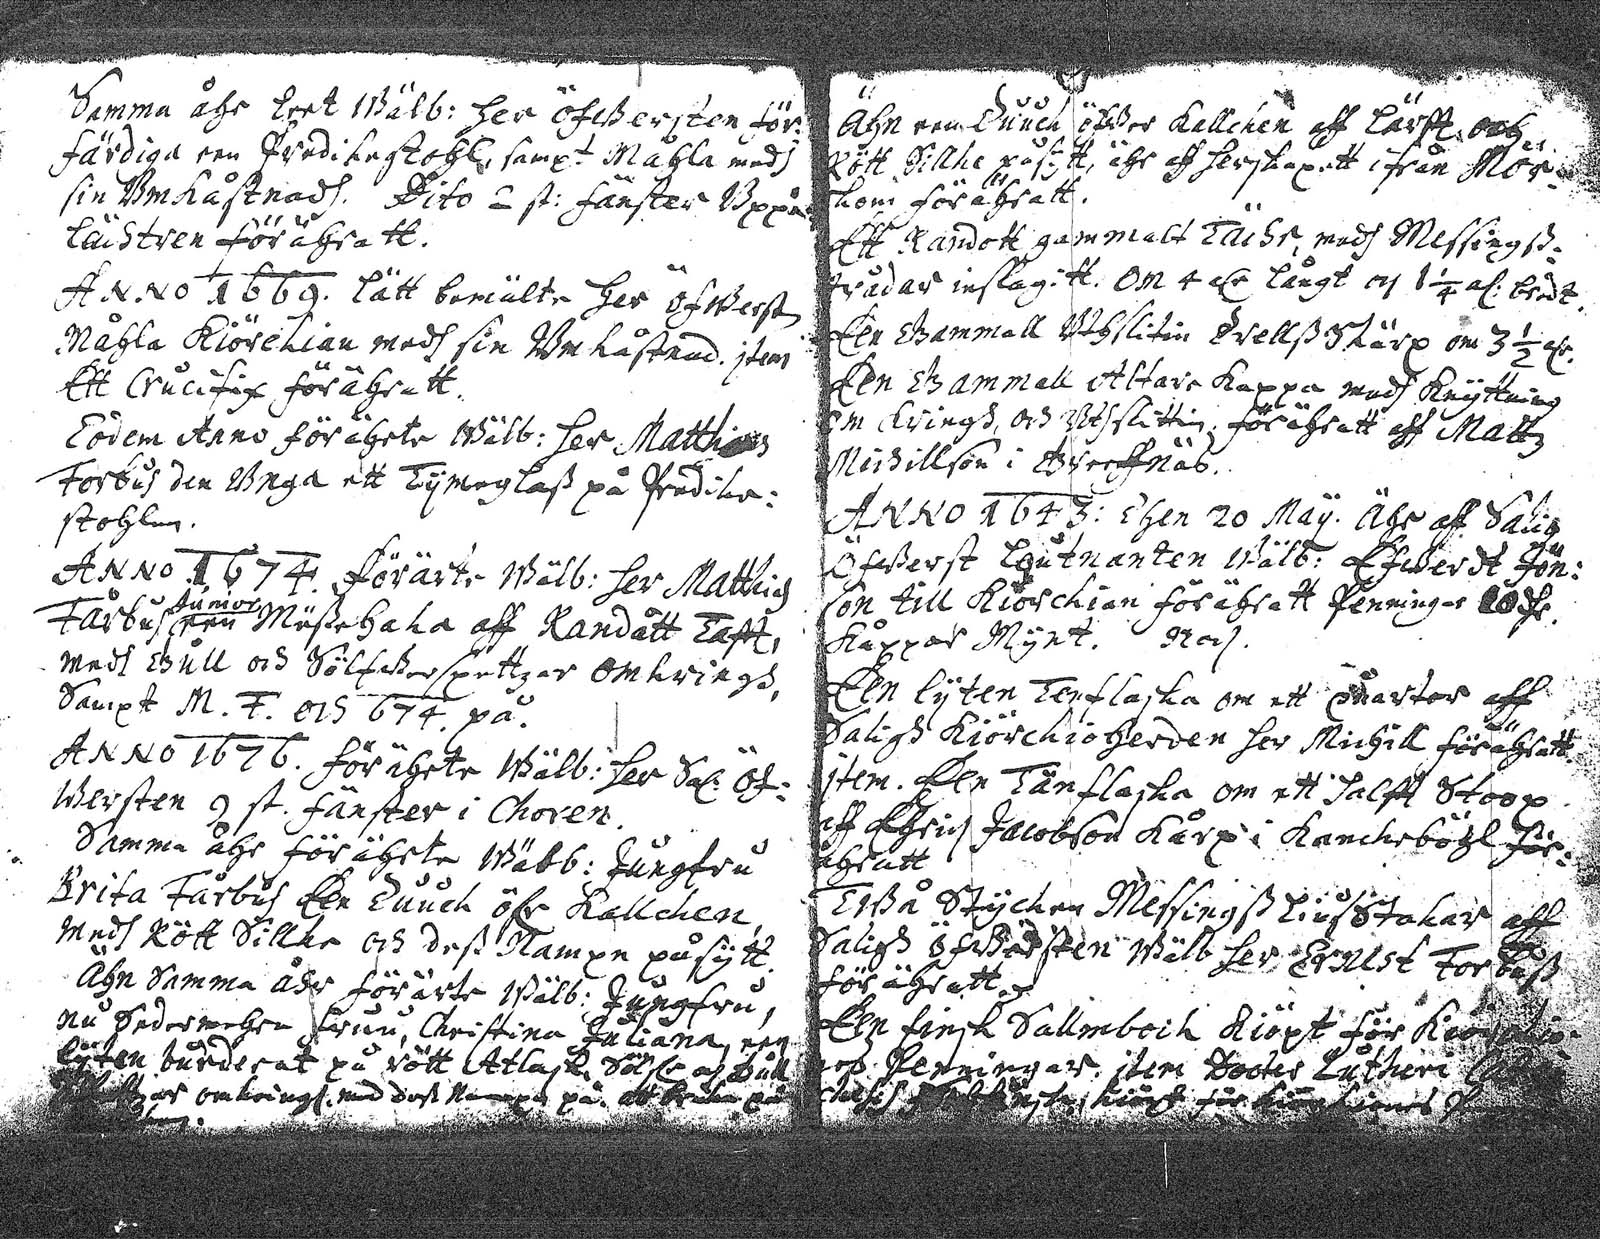 Samma åhr leet Wälb: her Öfwersten för:
färdiga een Predikestohl, sampt Måhla medh
sin Vmkåstnadh. Dito 2 st: fänster Vppå
Läichtren förähratt.
ANNO 1669. Lätt bemälte her Öfwerst
Måhla Kiörckian medh sin Vmkåstnad. jtem
Ett Crucifix förähratt.
Eodem Anno förährte Wälb: her Matthias
Forbus den Vnga ett Tÿmeglass på Predike:
stohlen.
ANNO 1674. förärte Wälb: her Matthias
Farbus Junior een Mässehaka aff Randått Tafft,
medh Gull och Sölfwerspettzar omkringh,
Sampt M. F. och 674. på.
ANNO 1676. förährte Wälb: her Sal: Öf:
Wersten 9 st. fänster i Choren.
Samma åhr förährte Wälb: Jungfru
Brita Farbus Een Duuck öfr Kallcken,
medh Rött Sillke och dess Nampn påsÿtt.
Ähn Samma åhr förärte Wälb: Jungfru,
nu Sedermehra fruu, Christina Juliana, een
lÿten burderat på rött Atlask, Sölf och Gull
omkringh, med dess Nampn på. att bruka på
Ähn een Duuck öfwer Kallcken aff Lärfft och
Rött Sillke påsÿtt, ähr aff herskapett ifrån Mör:
kom förähratt.
Ett Randott gammalt Täckr, medh Messingss:
trådar inslagitt. Om 4 alr långt och 1 1/4 al: bredt.
Een Gammall Vthslitin Drellss Skärp om 3 1/2 alr.
Een Gammall Altare Kappa medh Knÿttning
om kringh, och Vthslittin, förähratt aff Matts
Michillson i Greffnäs.
ANNO 1643: Then 20 Maÿ. Ähr aff Salig
Öfwerst Leutnanten Wälb: Efwerdt Jön:
son till Kiörckian förähratt Penningar 10 dr.
Kåppar Mÿnt.
Een lÿten Tenflaska om ett Quarter aff
Saligh Kiörckioherden her Michill förähratt.
jtem. Een Tänflaska om ett halfft Stoop
aff Ehrich Jacobson Kårp i Kanckeböhl för:
ähratt
Twå Stÿcken Messingss Liusstakar aff
Saligh Öfwersten Wälb her Ernest Forbuss
förähratt.
Een finsk Sallmboik Kiöpt för Kiörckio:
nes Penningar. jtem Docter Lutheri